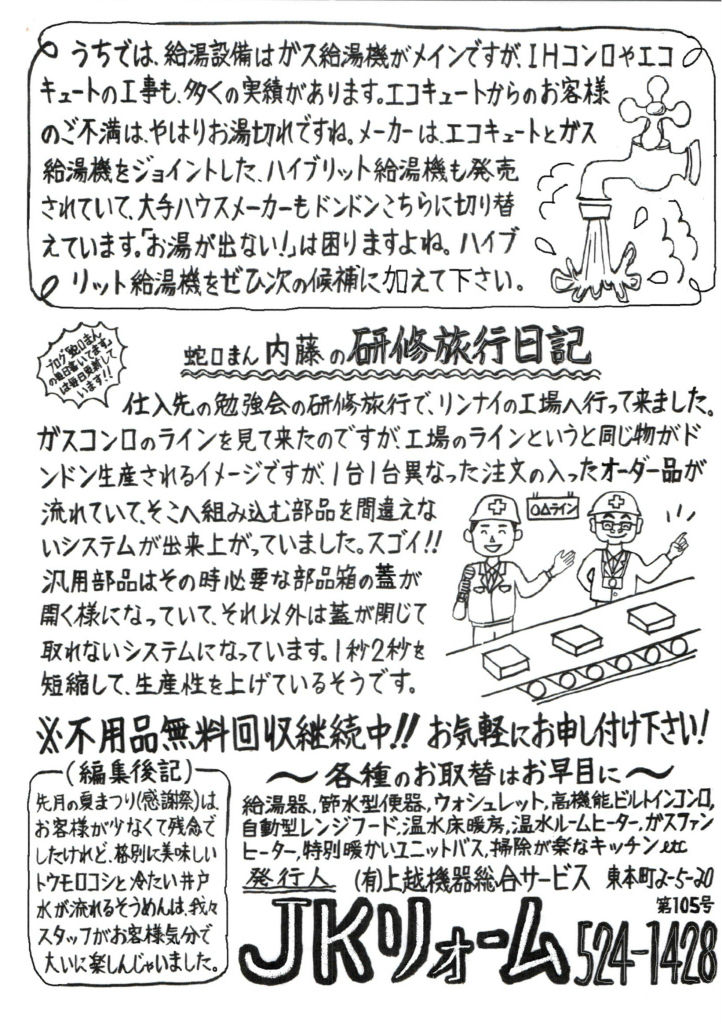 うちでは、給湯設備はガス給湯機がメインですが、IHコンロやエコ
キュートの工事も、多くの実績があります。エコキュートからのお客様
のご不満は、やはりお湯切れですね。メーカーは、エコキュートとガス
給湯機をジョイントした、ハイブリット給湯機も発売
されていて、大手ハウスメーカーもドンドンこちらに切り替
えています。「お湯が出ない!」は困りますよね。ハイブ
リット給湯機をぜひ次の候補に加えて下さい。
ブログ「蛇口まん
の毎日書いてます。」
は毎日更新して
います!!
蛇口まん内藤の研修旅行日記
仕入先の勉強会の研修旅行で、リンナイの工場へ行って来ました。
ガスコンロのラインを見て来たのですが、工場のラインというと同じ物がド
ンドン生産されるイメージですが、1台1台異なった注文の入ったオーダー品が
流れていて、そこへ組み込む部品を間違えな
いシステムが出来上がっていました。スゴイ!!
汎用部品はその時必要な部品箱の蓋が
開く様になっていて、それ以外は蓋が閉じて
取れないシステムになっています。1秒2秒を
短縮して、生産性を上げているそうです。
○△ライン
※不用品無料回収継続中!! お気軽にお申し付け下さい!
(編集後記)
先月の夏まつり(感謝祭)は、
お客様が少なくて残念で
したけれど、格別に美味しい
トウモロコシと冷たい井戸
水が流れるそうめんは、我々
スタッフがお客様気分で
大いに楽しんじゃいました。
〜各種のお取替はお早目に〜
給湯器、節水型便器、ウォシュレット、高機能ビルトインコンロ、
自動型レンジフード、温水床暖房、温水ルームヒーター、ガスファン
ヒーター、特別暖かいユニットバス、掃除が楽なキッチンetc
発行人 (有)上越機器総合サービス 東本町2-5-20
第105号
JKリォーム 524-1428